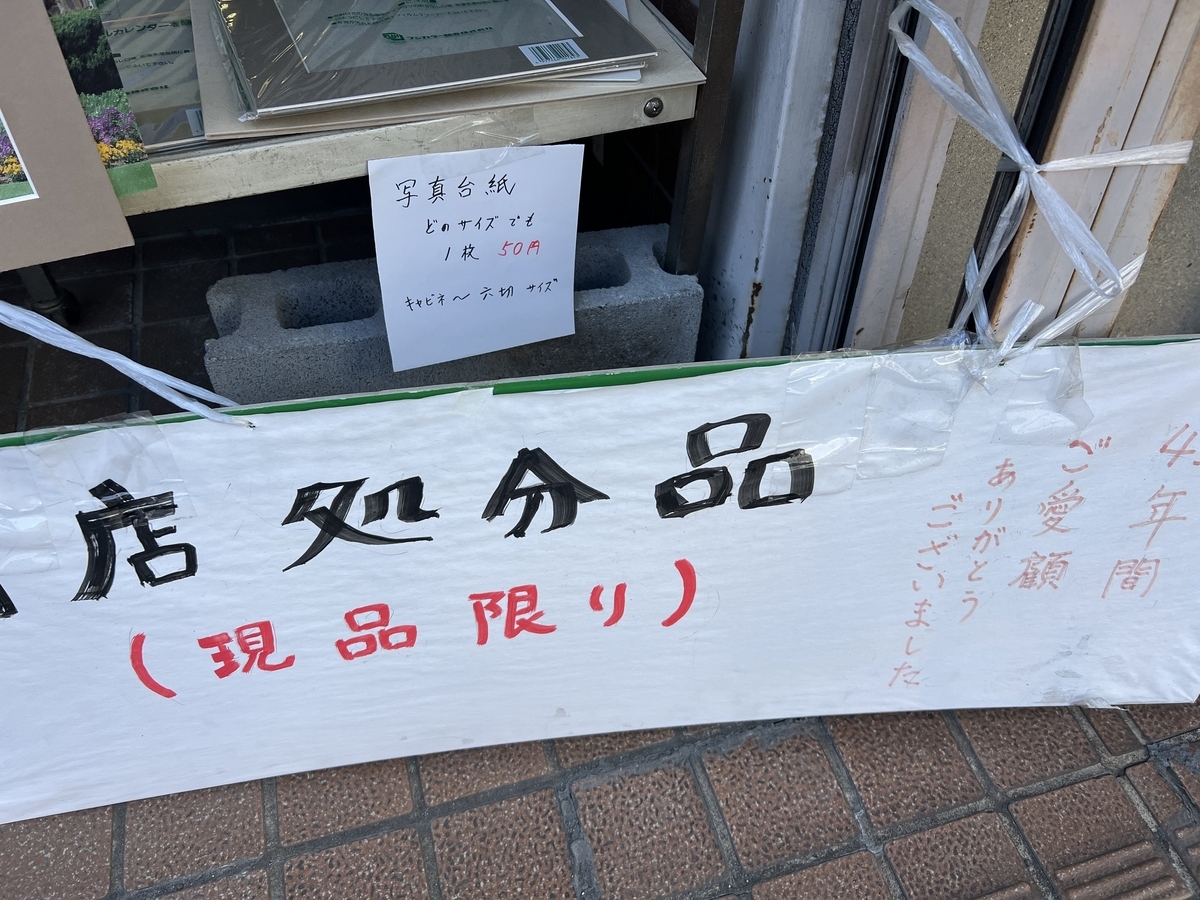 写真台紙
どのサイズでも
1枚 50円
キャビネ〜六切サイズ
店処分品
(現品限り)
年間
ご愛顧
ありがとう
ございました